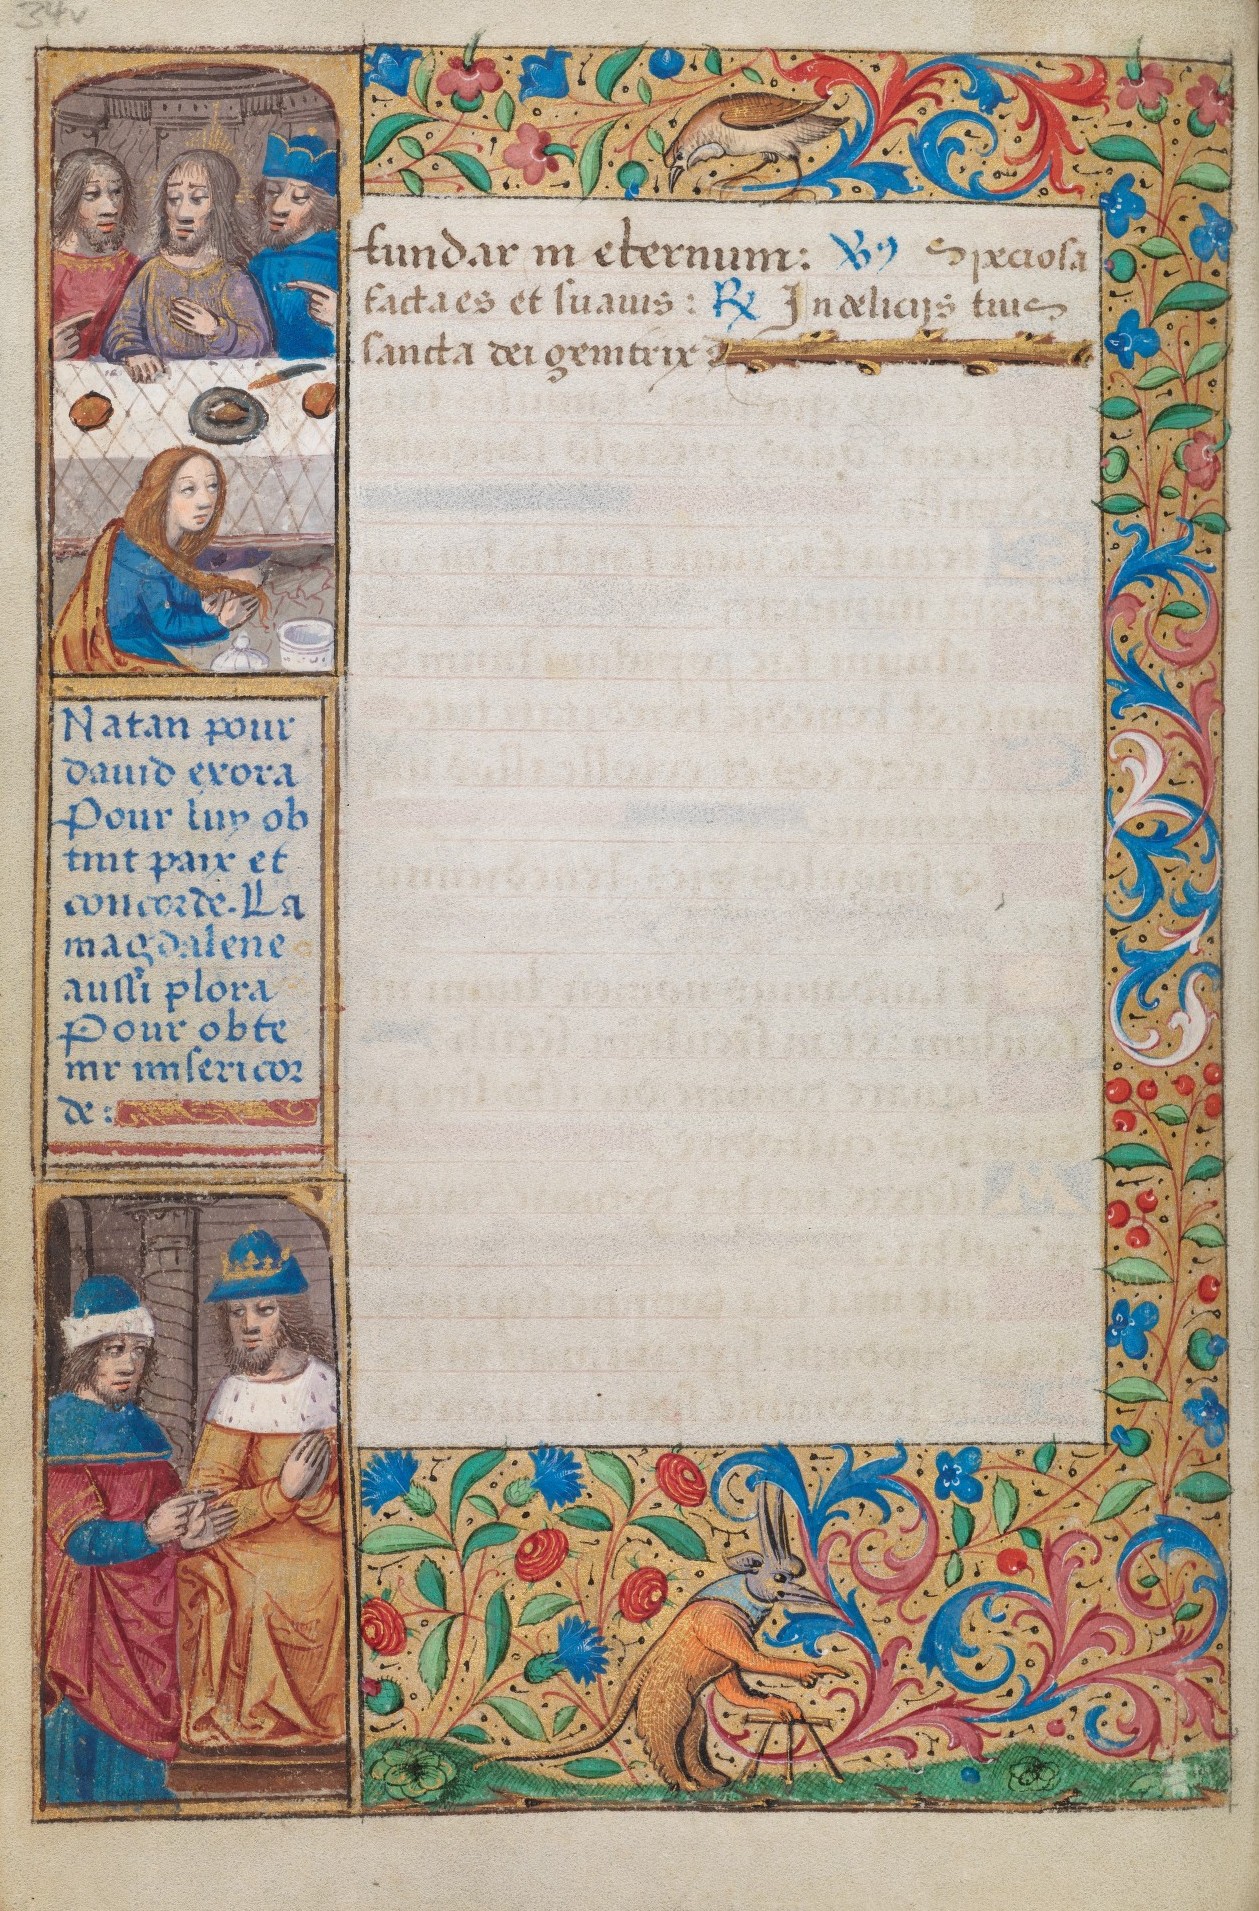 34v
fundar in eternum: V9 Speciosa
facta es et suauis: R In deliciis tuis
sancta dei genitrix
Natan pour
dauid exora
Pour luy ob
tint paix et
concorde. La
magdalene
aussi plora
Pour obte
nir misericor
de: